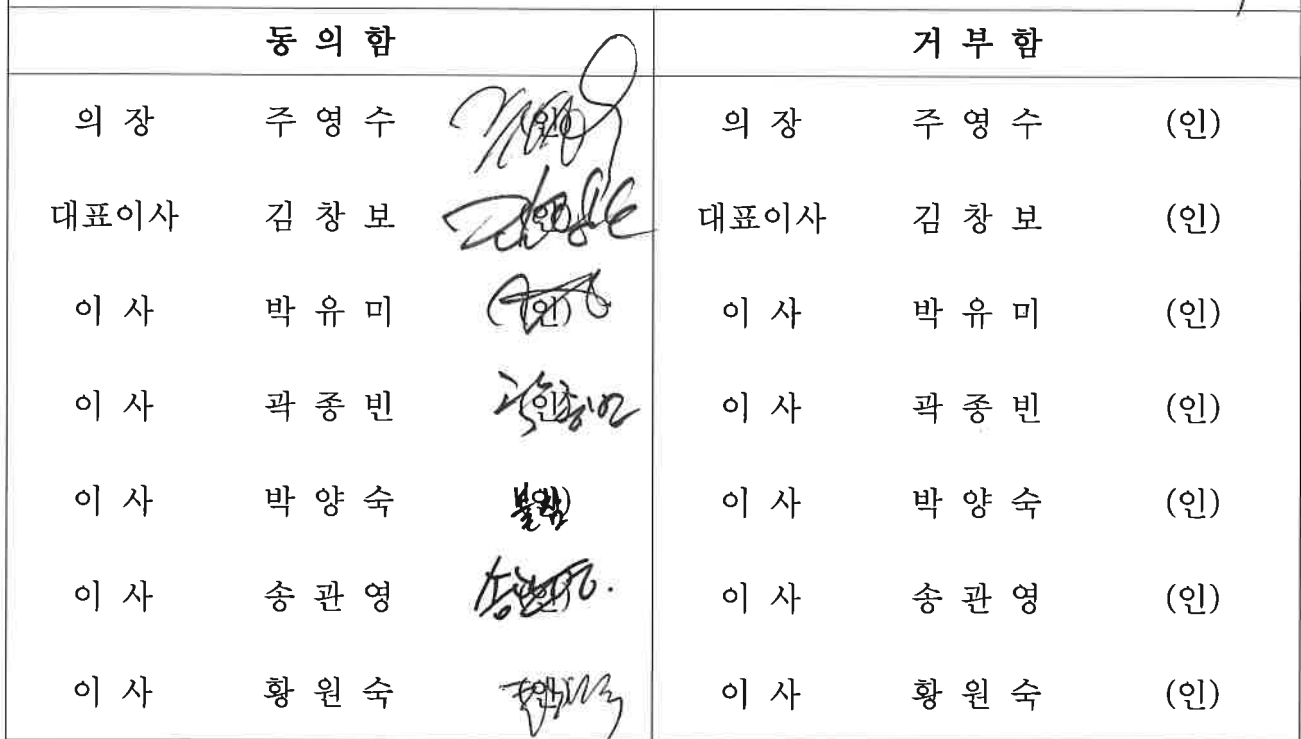 동 의 함 거 부 함
의 장 주 영 수 (인) 의 장 주 영 수 (인)
대표이사 김 창 보 (인) 대표이사 김 창 보 (인)
이 사 박 유 미 (인) 이 사 박 유 미 (인)
이 사 곽 종 빈 (인) 곽종빈 이 사 곽 종 빈 (인)
이 사 박 양 숙 불참 이 사 박 양 숙 (인)
이 사 송 관 영 (인) 이 사 송 관 영 (인)
이 사 황 원 숙 (인) 이 사 황 원 숙 (인)